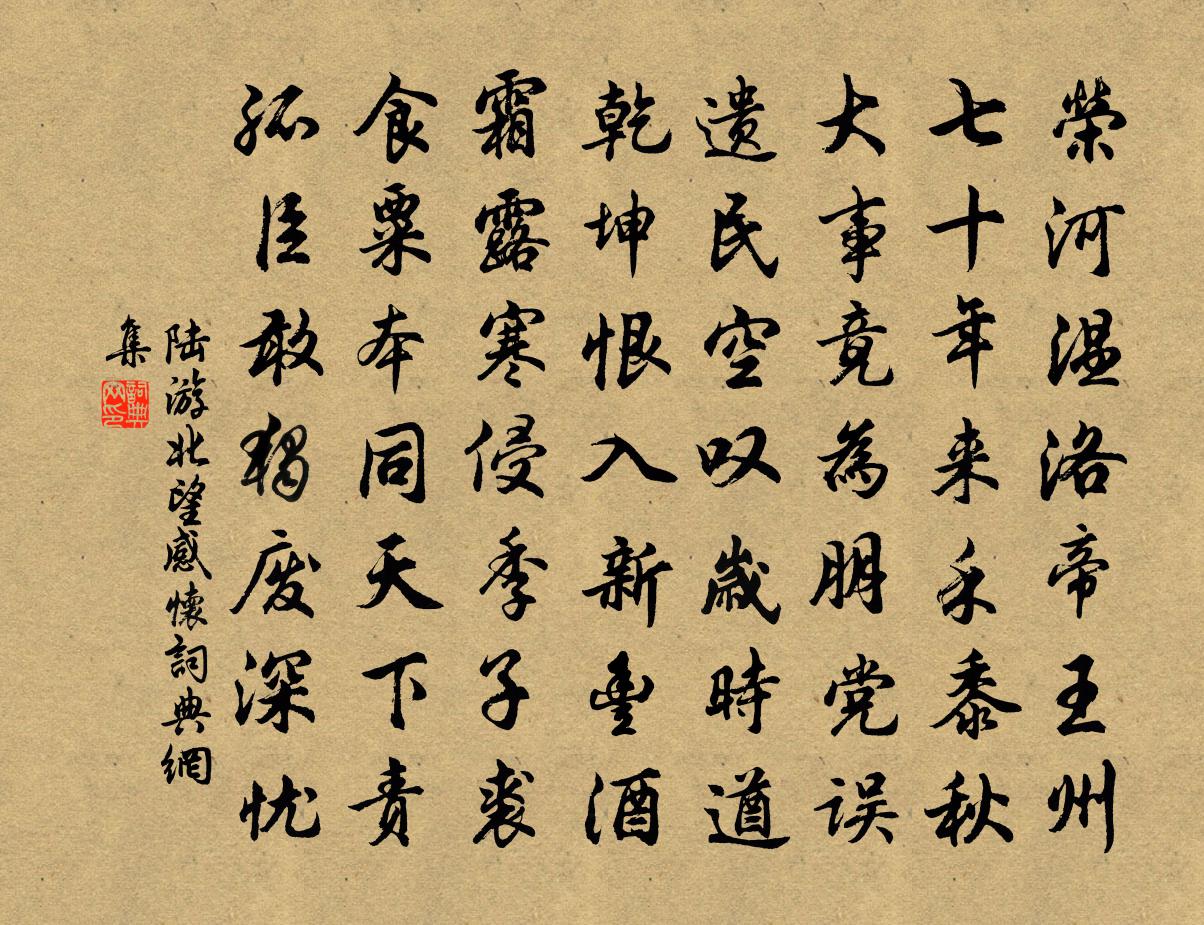 榮河温洛帝王州
七十年来禾黍秋
大事竟為朋党误
遗民空叹歳時遒
乾坤恨入新豊酒
霜露寒侵季子裘
食粟本同天下责
孤臣敢獨废深忧
陆游北望感懷詞典網
集
詞典
网印